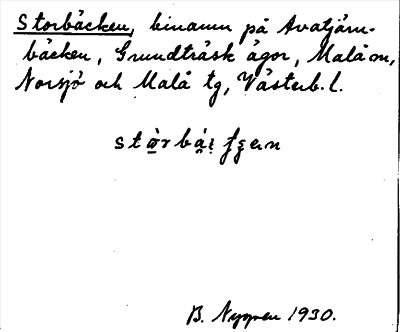 Storbäcken, binamn på Avatjärn-
bäcken, Grundträsk ägor, Malå m,
Norsjö och Malå tg, Västerb. l.
B. Nygren 1930.